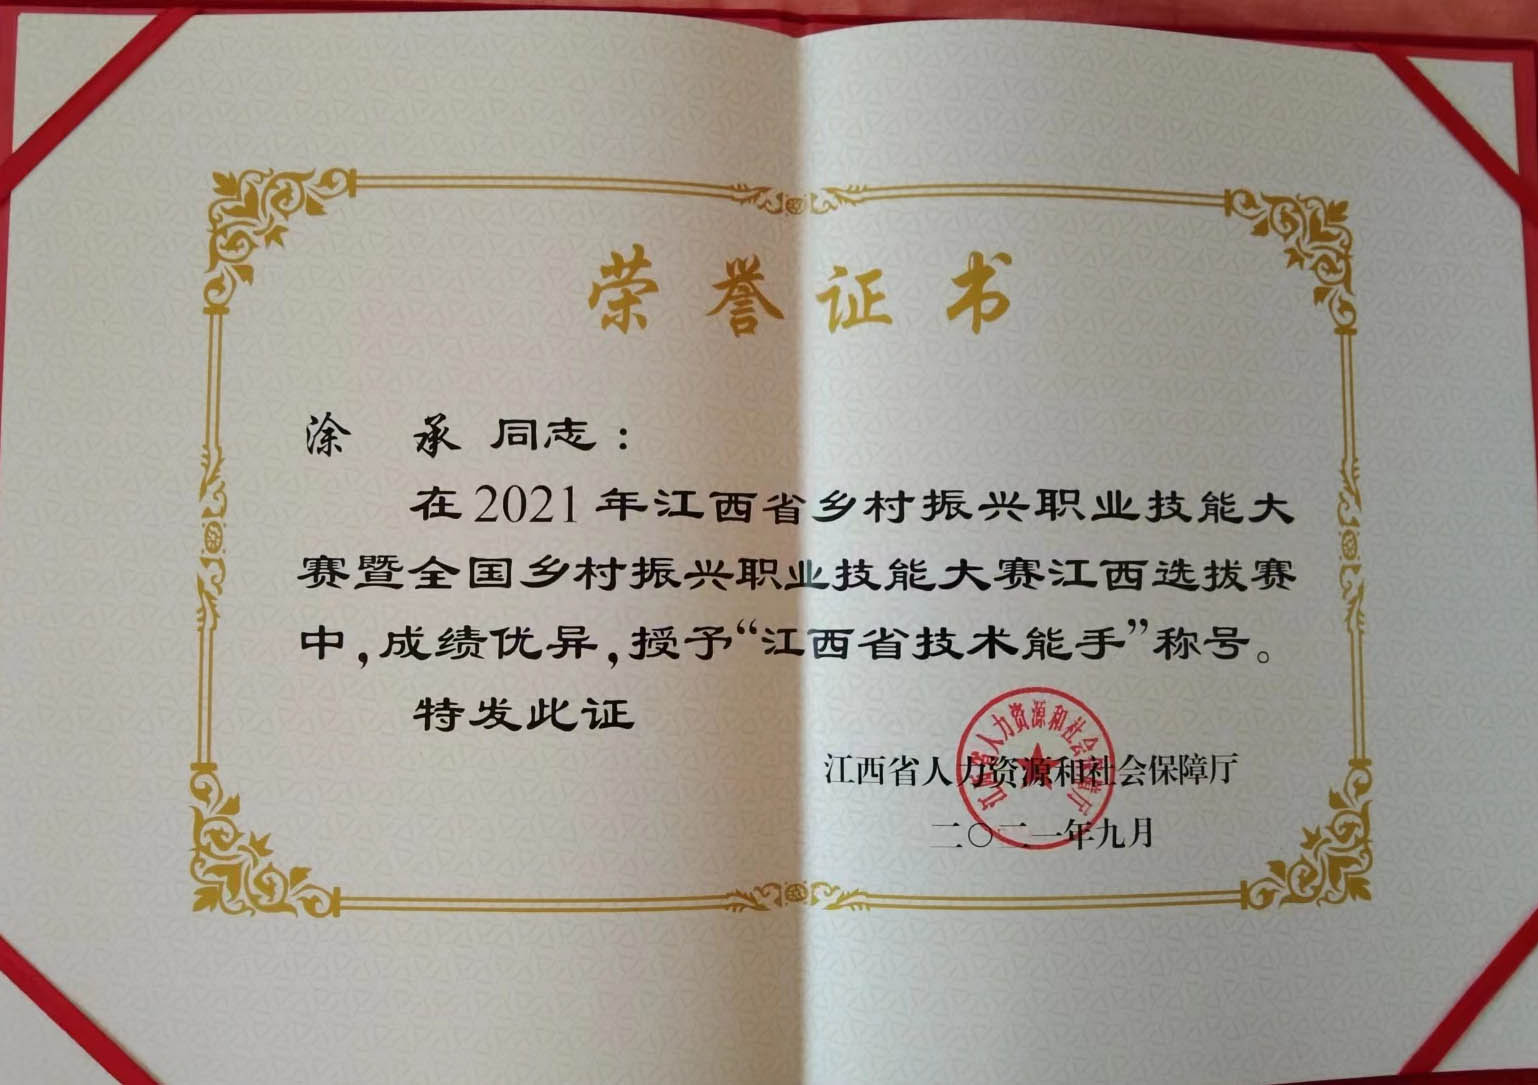 荣誉证书
涂 承 同志：
在2021年江西省乡村振兴职业技能大
赛暨全国乡村振兴职业技能大赛江西选拔赛
中，成绩优异，授予“江西省技术能手”称号。
特发此证
江西省人力资源和社会保障厅
江西省人力资源和社会保障厅
二〇二一年九月